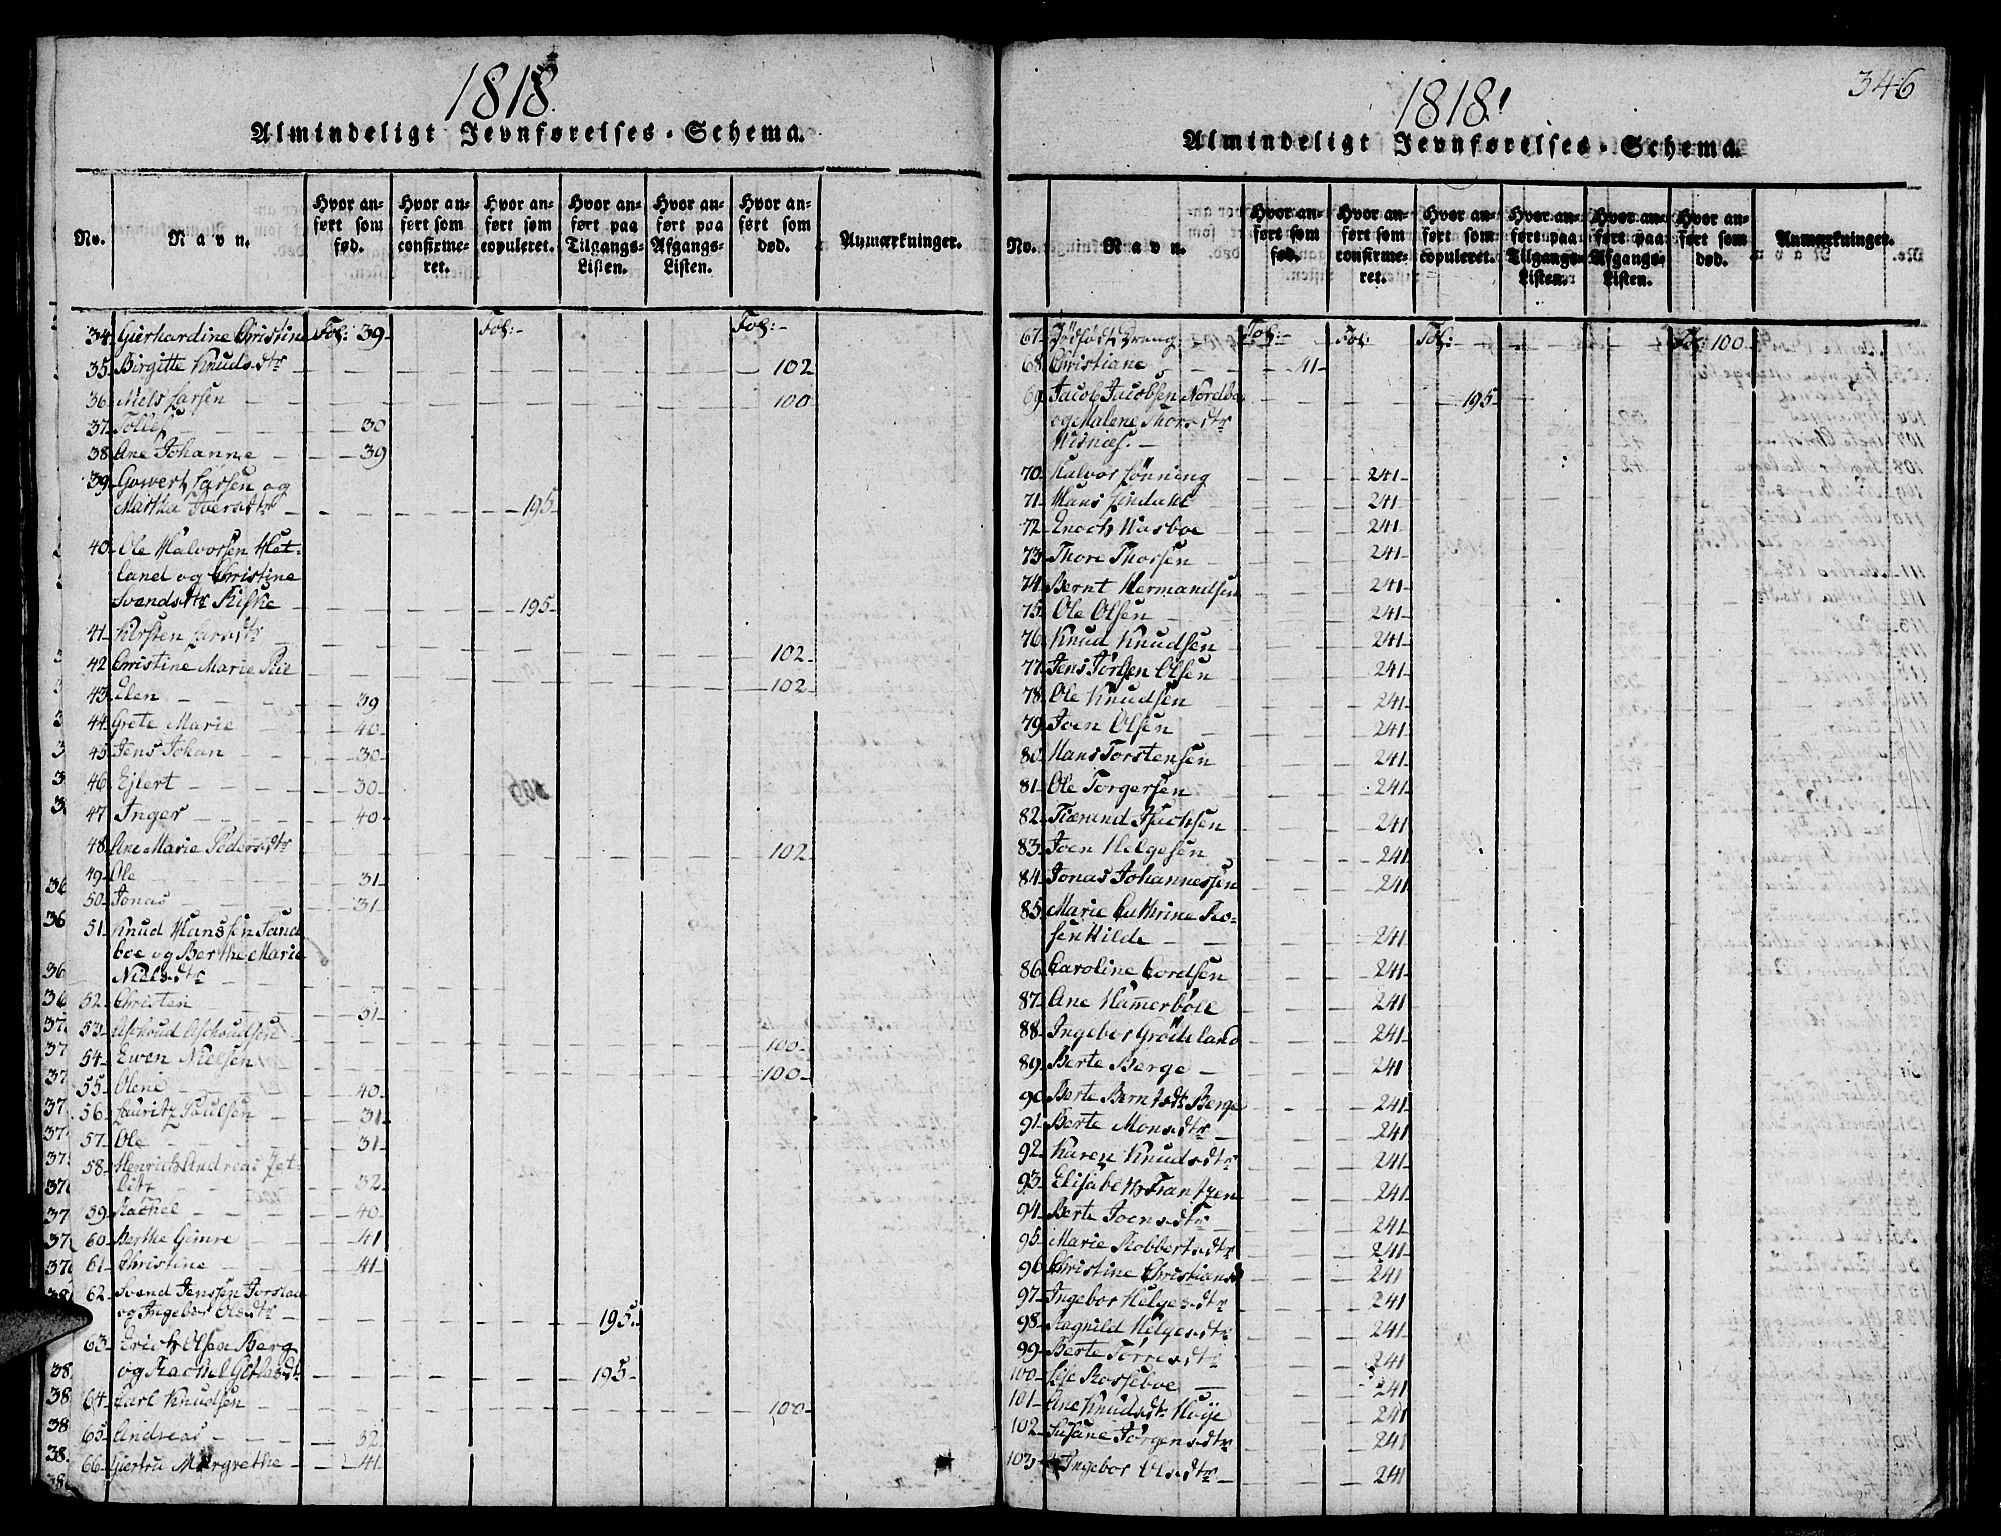 1818.
Almindeligt Jevnførelses-Schema.
No.
Navn.
Hvor anført som fød.
Hvor anført som confirmeret.
Hvor anført som copuleret.
Hvor anført paa Tilgangs-Listen.
Hvor anført paa Afgangs-Listen.
Hvor anført som død.
Anmærkninger.
34. Gierhardine Christine Fol: 39 Fol: - Fol: -
35. Birgitte Knudsdtr 102
36. Niels Larsen 100
37. Tollef 30
38. Ane Johanne 39
39. Gowert Larsen og
Martha Iversdtr 195
40. Ole Halvorsen Het-
land og Christine
Svendsdtr Riske 195
41. Kirsten Larsdtr 102
42. Christine Marie 102
43. Elen 39
44. Grete Marie 40
45. Jens Johan 30
46. Ejlert 30
47. Inger 40
48. Ane Marie Pedersdtr 102
49. Ole 31
50. Jonas 31
51. Knud Hanssen Sand
boe og Berthe Marie
Nielsdtr
52. Christen 31
53. 100
54. Ewen Nielsen 100
55. Olene 40
56. Lauritz Paulsen 31
57. Ole 31
58. Henrich Andreas Jet-
litz 32
59. Rachel 40
60. Berthe Gimre 41
61. Christine 41
62. Svend Jenssen
og Ingebor Olsdtr 195.
63. Erich Olsen Berg
og Rachel 195
64. Carl Knudsen 100
65. Andreas 32
66. Giertru Margrethe 41
1818.
346
Almindeligt Jevnførelses-Schema.
No.
Navn.
Hvor anført som fød.
Hvor anført som confirmeret.
Hvor anført som copuleret.
Hvor anført paa Tilgangs-Listen.
Hvor anført paa Afgangs-Listen.
Hvor anført som død.
Anmærkninger.
67. Dödfödt Dreng Fol: - Fol: Fol: Fol: 100
68. Christiane 41
69. Jacob Jacobsen Nordbo
og Malene Thorsdtr
Wisnæs. 195
70. Halvor Lönning 241
71. Hans Lindahl 241
72. Enoch Husboe 241
73. Thore Thorsen 241
74. Bernt Hermandsen 241
75. Ole Olsen 241
76. Knud Knudsen 241
77. Jens Jörgen Olsen 241
78. Ole Knudsen 241
79. Joen Olsen 241
80. Hans Torstensen 241
81. Ole Torgersen 241
82. Tiærand 241
83. Joen Helgesen 241
84. Jonas Johannessen 241
85. Marie Cathrine Ro-
senkilde 241
86. Caroline Cordtsen 241
87. Ane Hamerböe 241
88. Ingebor Grödeland 241
89. Berte Berge 241
90. Berte Berntsdtr Berge 241
91. Berte Monsdtr 241
92. Karen Knudsdtr 241
93. Elisabeth Frantzen 241
94. Berte Joensdtr 241
95. Marie Robbertsdtr 241
96. Christine Christiansd 241
97. Ingebor Helgesdtr 241
98. Ragnild Helgesdtr 241
99. Berte Torresdtr 241
100. Sije Rosseboe 241
101. Ane Knudsdtr Høye 241
102. Susane Jörgensdtr 241
103. Ingebor Olsdtr 241